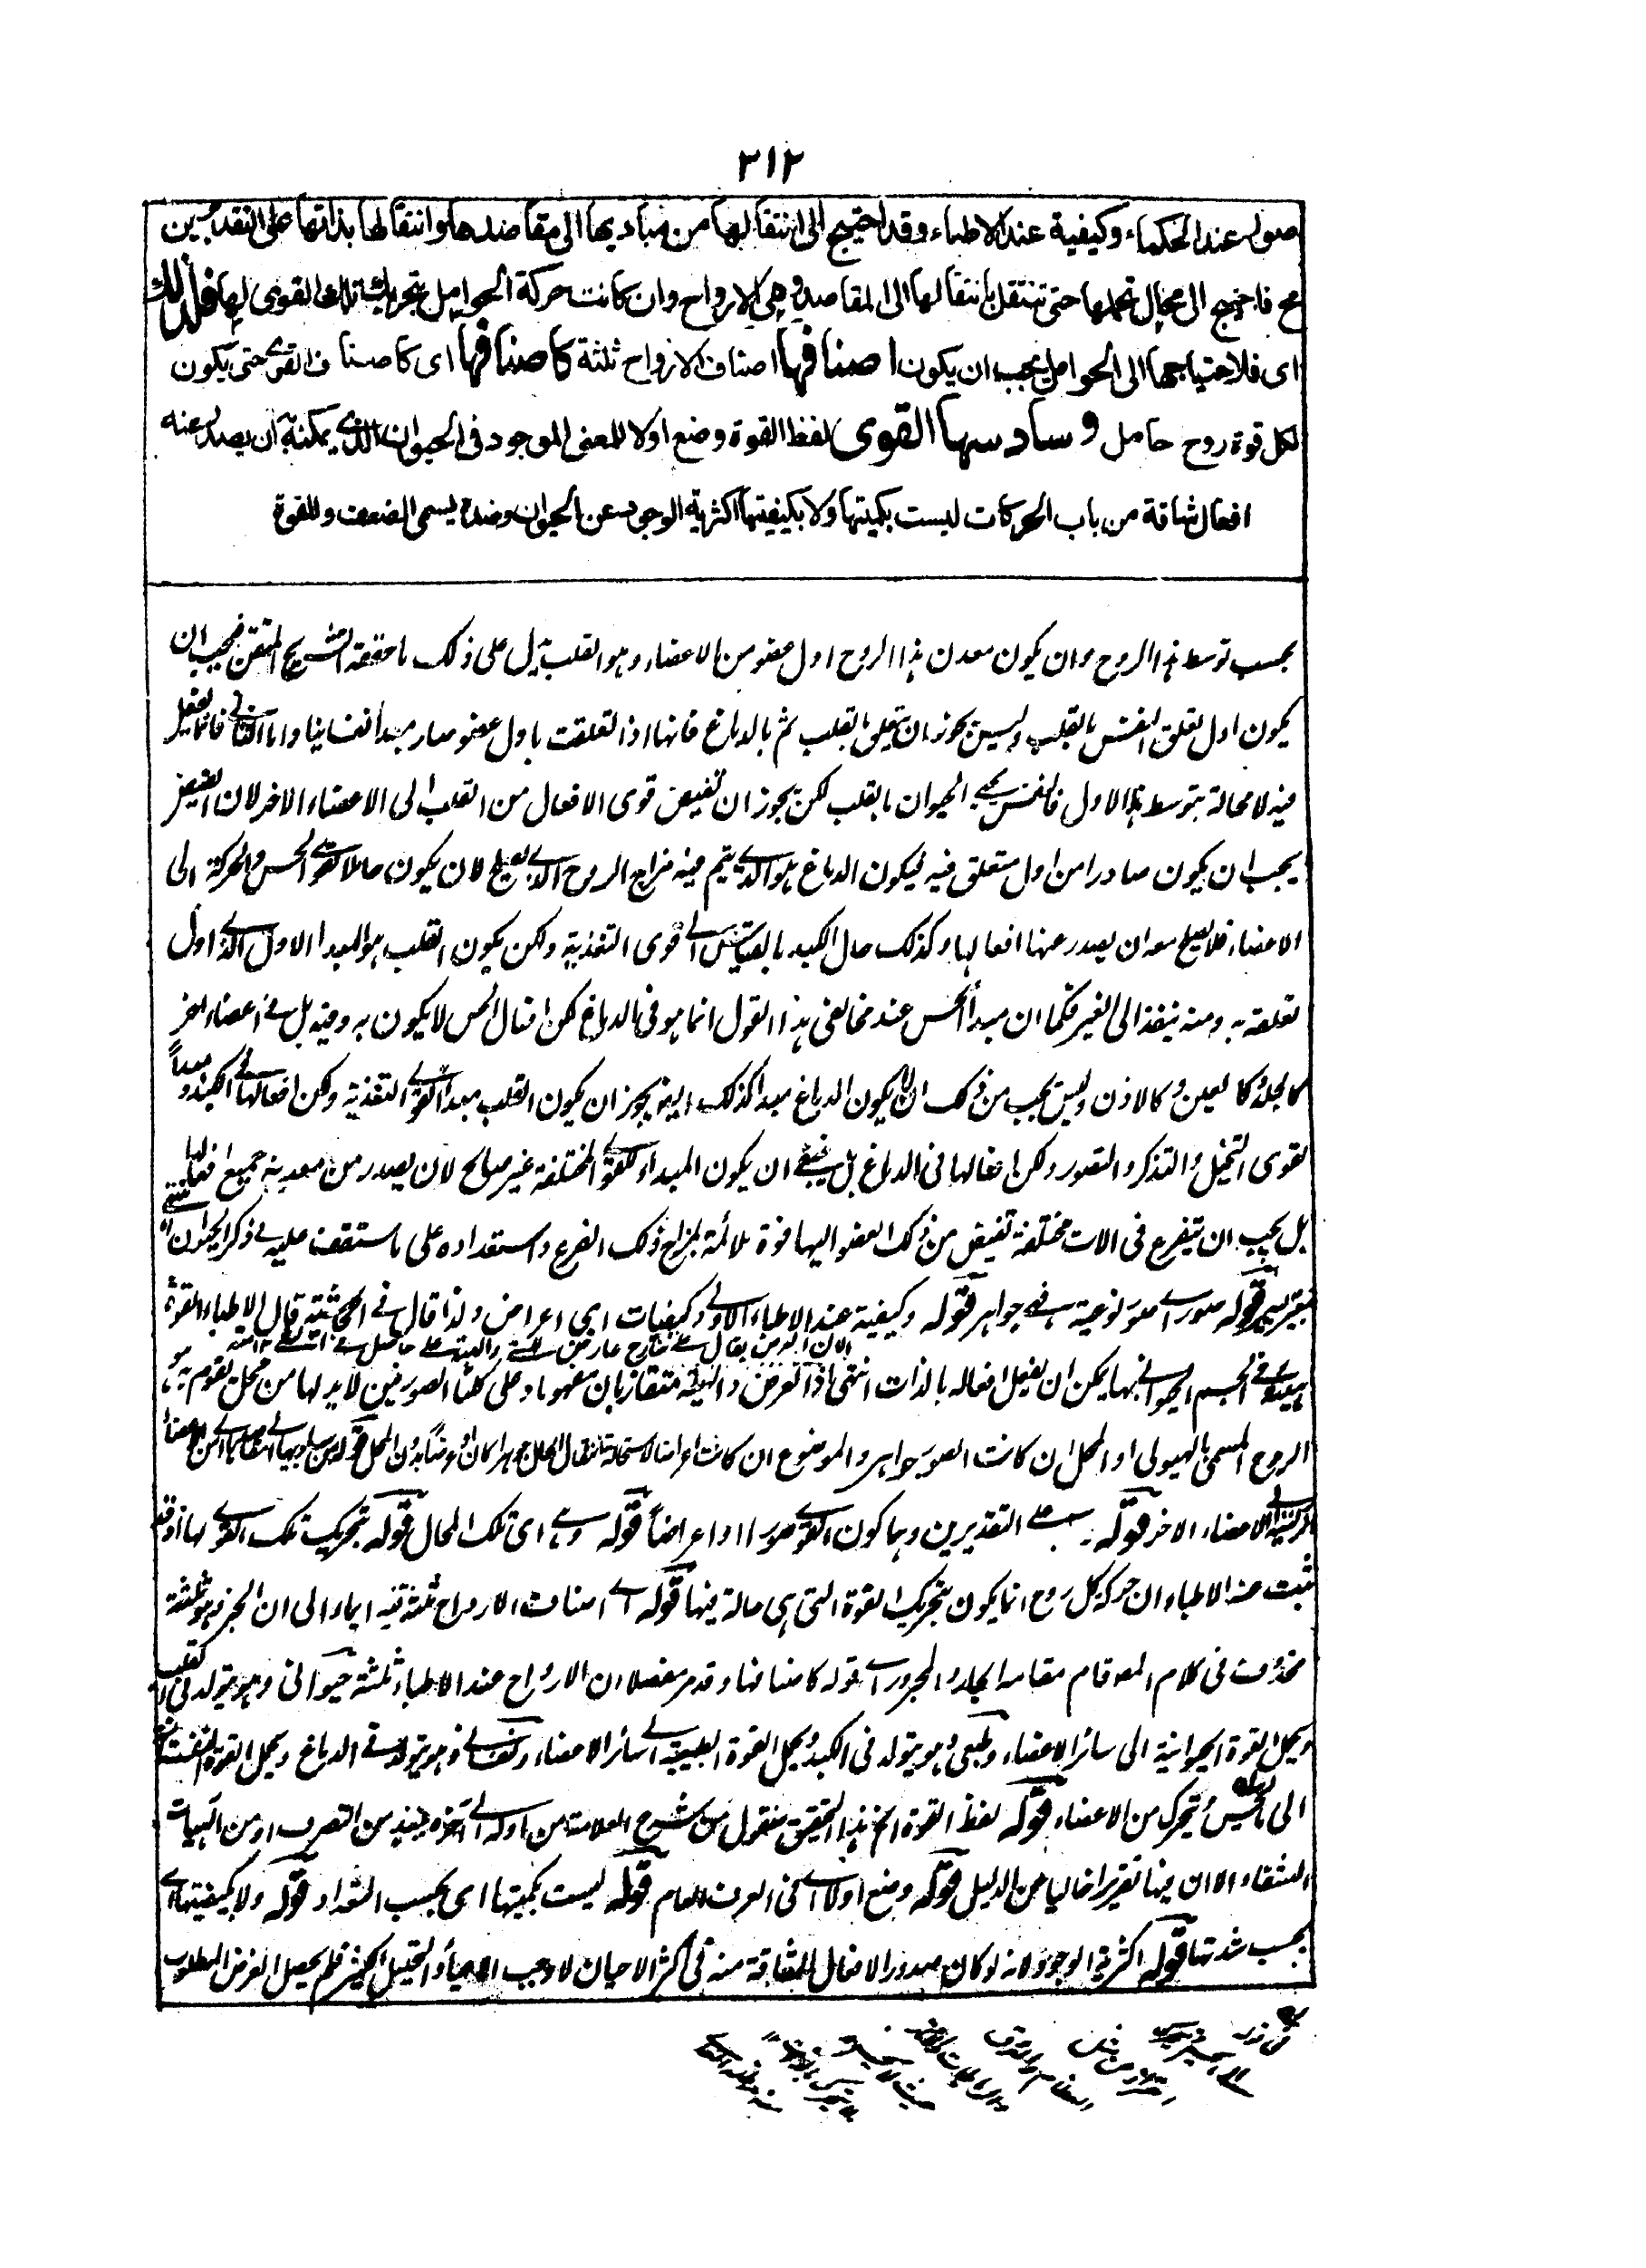 ٢١٢
صور عند الحكماء وكيفية عند الاطباء وقد احتيج الى انتقالها من مباديها الى مقاصدها وانتقالها بذاتها على التقديرين
مح فاحتيج الى محال تحملها حتى تنتقل بانتقالها الى المقاصد وهى الارواح وان كانت حركة الحوامل بتحريك تلك القوى لها فلذلك
اى فلاحتياجها الى الحوامل يجب ان يكون اصنافها اصناف الارواح ثلثة كاصنافها اى كاصناف القوى حتى يكون
لكل قوة روح حامل وسادسها القوى لفظ القوة وضع اولا للمعنى الموجود فى الحيوان الذى يمكنه ان يصدر عنه
افعال شاقة من باب الحركات ليست بكميتها ولا بكيفيتها اكثرية الوجود عن الحيوان وضده يسمى الضعف وللقوة
بحسب توسط هذا الروح وان يكون معدن هذا الروح اول عضو من الاعضاء وهو القلب يدل على ذلك ما حققه التشريح المتقن فيجب ان
يكون اول تعلق النفس بالقلب وليس يجوز ان يتعلق بالقلب ثم بالدماغ فانها اذا تعلقت باول عضو صار مبدأ نفسانيا واما الثانى فانما يفعل
فيه لا محالة بتوسط هذا الاول فالنفس يحيى الحيوان بالقلب لكن يجوز ان تفيض قوى الافعال من القلب الى الاعضاء الاخر لان الفيض
يجب ان يكون صادرا من اول متعلق فيه فيكون الدماغ هو الذى يتم فيه مزاج الروح الذى يصلح لان يكون حاملا لقوى الحس والحركة الى
الاعضاء فلا يصلح معه ان يصدر عنها افعالها وكذلك حال الكبد بالقياس الى قوى التغذية ولكن يكون القلب هو المبدأ الاول الذى اول
تعلقه به ومنه ينفذ الى الغير فكما ان مبدأ الحس عند مخالفى هذا القول انما هو فى الدماغ لكن افعال الحس لا يكون به وفيه بل فى اعضاء اخر
كالجلد وكالعين وكالاذن وليس يجب من ذلك ان لا يكون الدماغ مبدأ كذلك ايضا يجوز ان يكون القلب مبدأ لقوى التغذية ولكن افعالها فى الكبد ومبدأ
لقوى التخيل والتذكر والتصور ولكن افعالها فى الدماغ بل ينبغى ان يكون المبدأ للقوى المختلفة غير صالح لان يصدر من معدنه جميع افعالها
بل يجب ان يتفرع فى الات مختلفة تفيض من ذلك العضو اليها قوة ملائمة لمزاج ذلك الفرع واستعداده على ما ستقف عليه فى ذكر الحيوان انتهى
قوله صور اى صور نوعية فهى جواهر قوله وكيفية عند الاطباء الاولى وكيفيات اى اعراض ولذا قال فى قال الاطباء القوة
هيئة فى الجسم الحيوانى بها يمكن ان يفعل افعاله بالذات انتهى اذ العرض والهيئة متقاربان مفهوما وعلى كلتا الصورتين لابد لها من محل تقوم به هو
الروح المسمى بالهيولى او المحل ان كانت الصور جواهر والموضوع ان كانت اعراضا لاستحالة انتقال الحال جوهرا كان او عرضا بدون المحل قوله من مباديها الى مقاصدها
الى الاعضاء الاخر قوله على التقديرين وهما كون القوى صورا او اعراضا قوله وهى اى تلك المحال قوله بتحريك تلك القوى لها اذ قد
ثبت عند الاطباء ان حركة كل روح انما يكون بتحريك القوة التى هى حالة فيها قوله اى اصناف الارواح ثلثة فيه ايماء الى ان الخبر وهو ثلثة
محذوف فى كلام المص قام مقامه الجار والمجرور اى قوله كاصنافها وقد مر مفصلا ان الارواح عند الاطباء ثلثة حيوانى وهو يتولد فى القلب
ويحمل القوة الحيوانية الى سائر الاعضاء وطبعى وهو يتولد فى الكبد ويحمل القوة الطبيعية الى سائر الاعضاء ونفسانى وهو يتولد فى الدماغ ويحمل القوة النفسانية
الى ما يحس ويتحرك من الاعضاء قوله لفظ القوة الخ هذا التحقيق منقول من شرح العلامة من اوله الى آخره بنبذ من التصرف او من الهيات
الشفاء الا ان فيها تقريرا خاليا عن الدليل قوله وضع اولا اى فى العرف العام قوله ليست بكميتها اى بحسب التعداد قوله ولا بكيفيتها اى
بحسب شدتها قوله اكثرية الوجود لانه لو كان صدور الافعال الشاقة منه فى اكثر الاحيان لاوجب الاعياء والتحليل الكثير فلم يحصل الغرض المطلوب